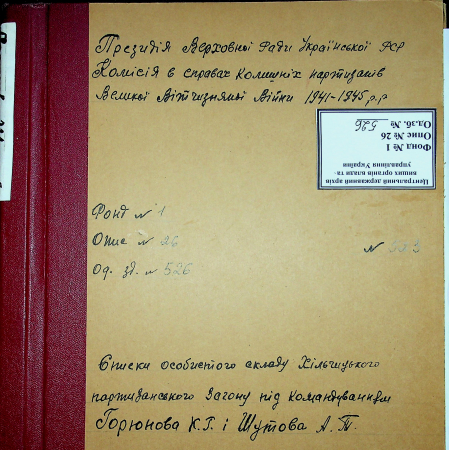 Президія Верховної Ради Української РСР
Комісія в справах колишніх партизанів
Великої Вітчизняної Війни 1941-1945 р.р
Центральний державний архів
вищих органів влади та
управління України
Фонд № 1
Опис № 26
Од.зб. № 526
Фонд № 1
Опис № 26
Од. зб. № 526
Списки особистого складу Хільчицького
партизанського Загону під командуванням
Горюнова К.Г. і Шутова А.Т.